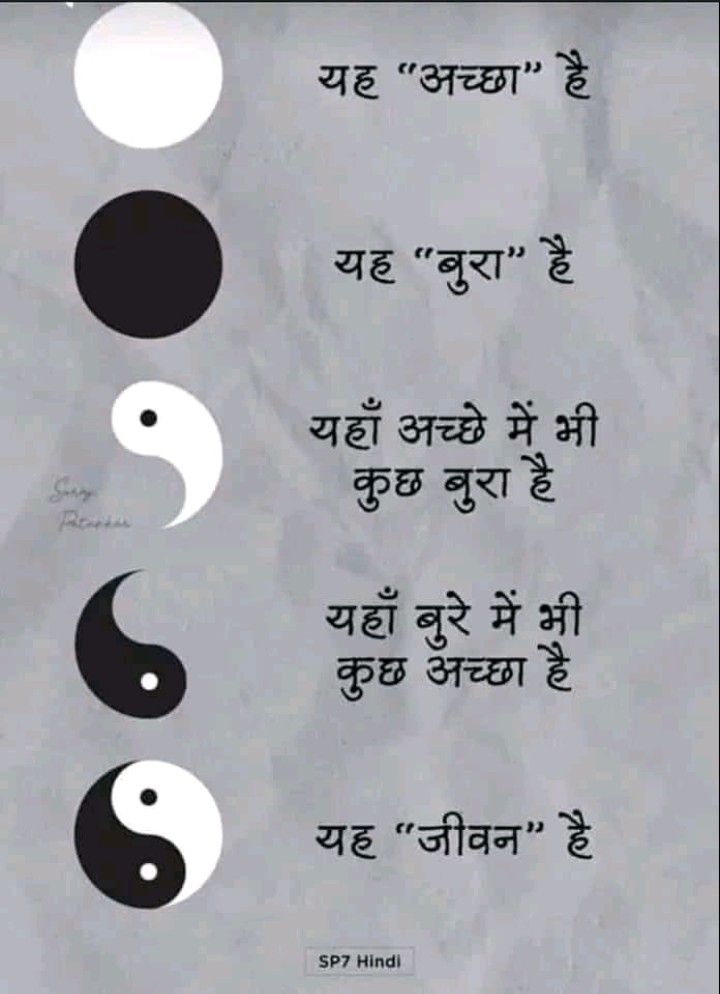 यह “अच्छा” है
यह “बुरा” है
यहाँ अच्छे में भी
कुछ बुरा है
यहाँ बुरे में भी
कुछ अच्छा है
यह “जीवन” है
SP7 Hindi